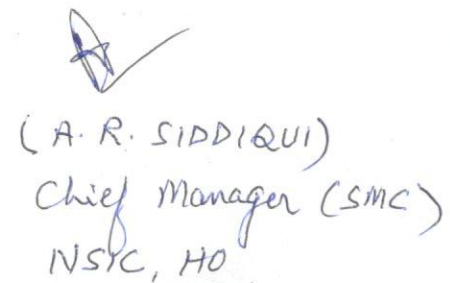 (A. R. SIDDIQUI)
Chief Manager (SMC)
NSIC, HO